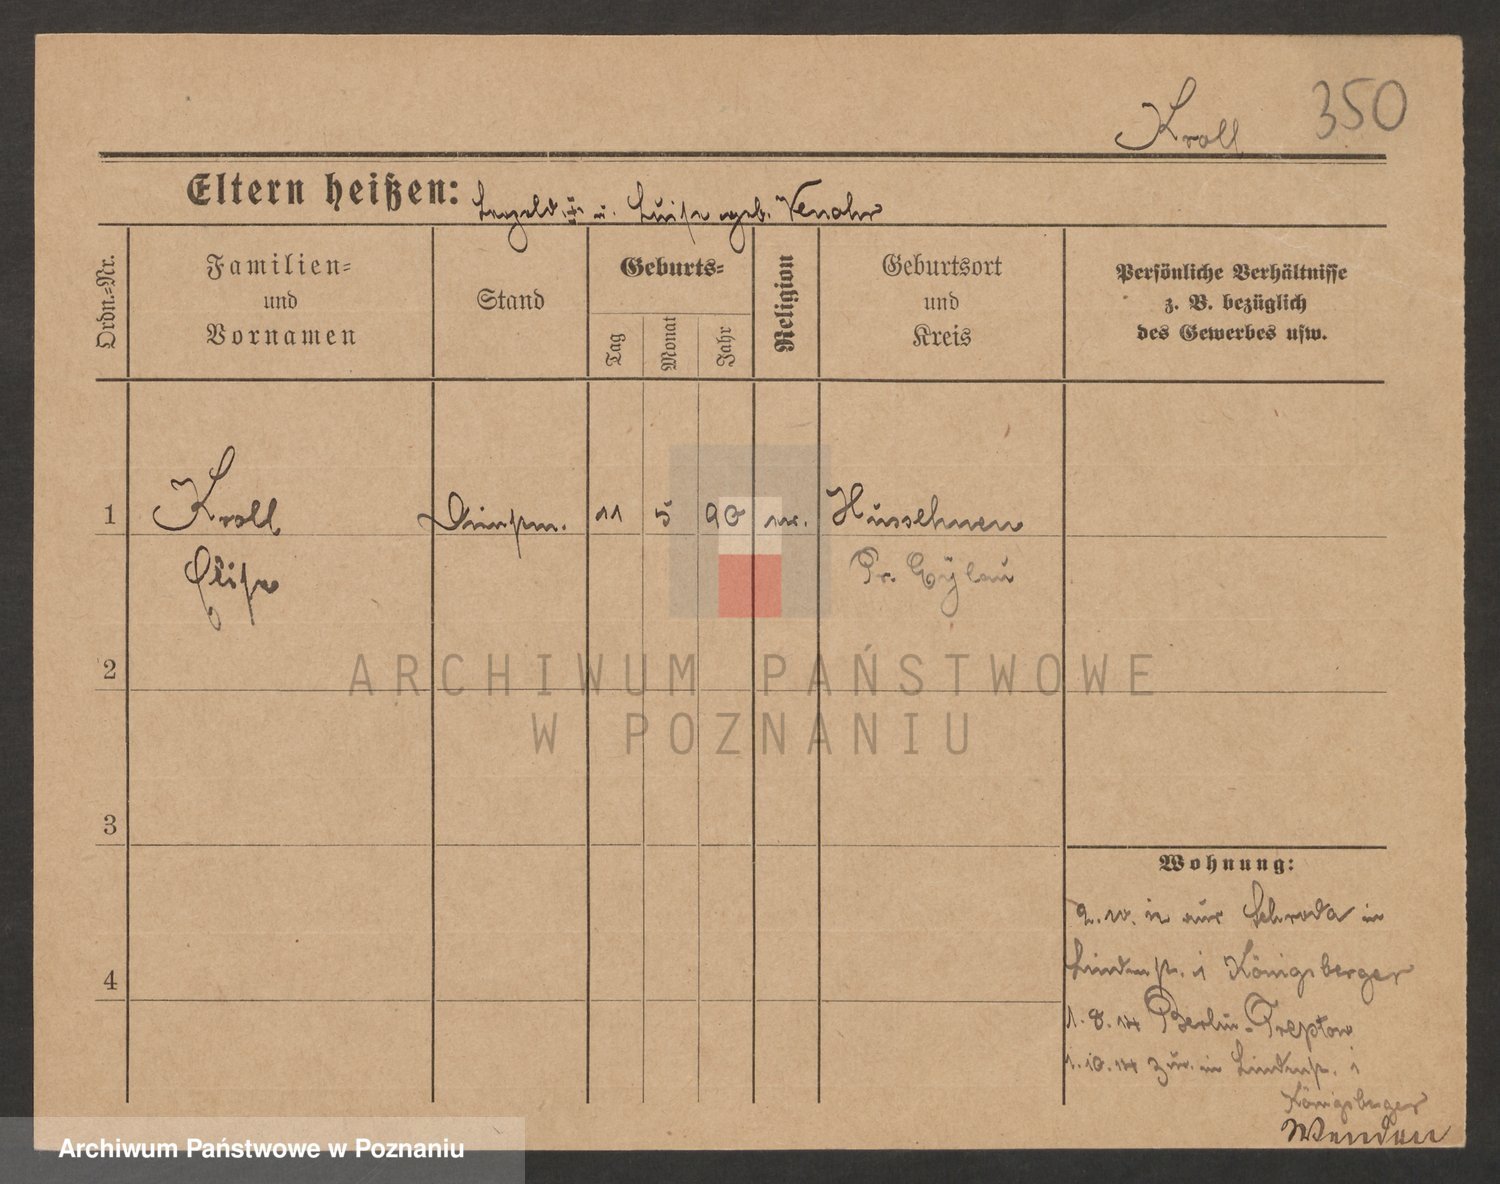 350
Kroll
Eltern heißen: Leopold u. Luise geb. Venohr
Ordn.=Nr.
Familien=
und
Vornamen
Stand
Geburts=
Tag
Monat
Jahr
Religion
Geburtsort
und
Kreis
Persönliche Verhältnisse
z. B. bezüglich
des Gewerbes usw.
1 Kroll 11 5 90 ev. Hussehnen
Elise Pr. Eylau
2
3
4
ARCHIWUM PAŃSTWOWE
W POZNANIU
Wohnung:
2.10.12 aus Schroda in
Lindenstr. 1 Königsberger
1.8.14 Berlin-Treptow
1.10.14 zur. in Lindenstr. 1
Königsberger
Archiwum Państwowe w Poznaniu